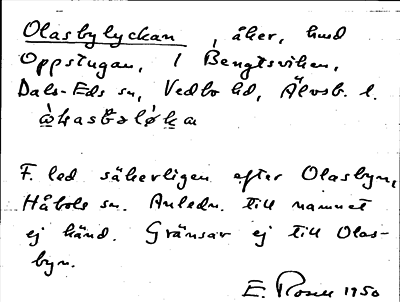 Olasbylyckan, åker, hmd
Oppstugan, 1 Bengtsviken,
Dals-Eds sn, Vedbo hd, Älvsb. l.
F. led säkerligen efter Olasbyn,
Håbols sn. Anledn. till namnet
ej känd. Gränsar ej till Olas-
byn.
E. 1950